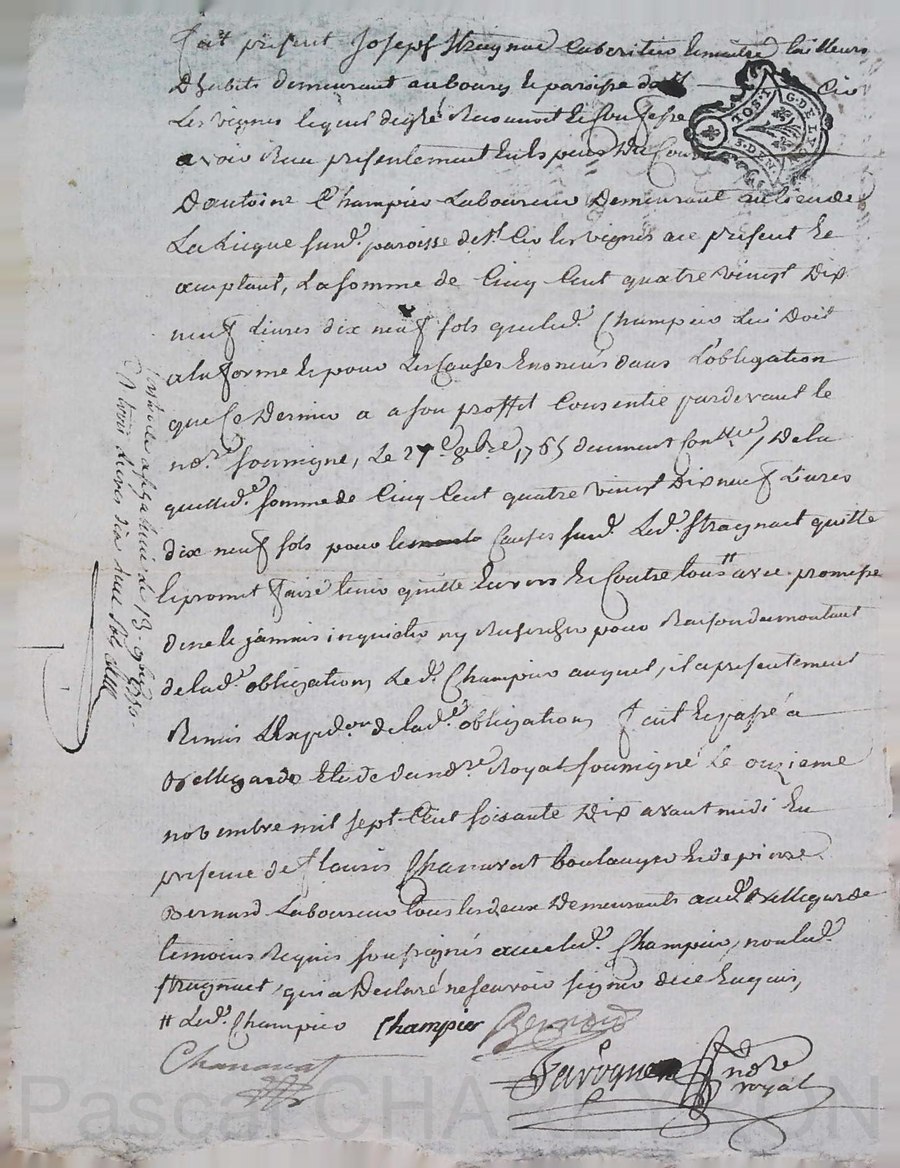 fut présent Joseph Stragnat cabaretier tailleurs
D'habits demeurant au bourg & paroisse de St Cir
Les vignes lequel de gré Reconnoit & confesse
avoir Reçu présentement
TOS. 1
G. DE LYON
5. DEN.
D'antoine Champier Laboureur Demeurant au lieu de
La susd.e paroisse de St Cir les vignes ace présent &
acceptant, La somme de Cinq Cent quatre vingt Dix
neuf Livres dix neuf sols que led. Champier Lui doit
a la forme & pour Les Causes Enoncés dans L'obligation
que Ce Dernier a a son proffit Consentie pardevant le
no.re soussigné, Le 27.e 8bre 1765 duement Conttlée, De la
quelle somme de Cinq Cent quatre vingt Dixneuf Livres
dix neuf sols pour les Causes susd. Led. Stragnat quitte
& promet faire tenir quitte Envers & Contre tous # avec promesse
de ne le jamais inquieter ny Rechercher pour Raison du montant
de lad.e obligation, Led. Champier auquel, il a presentement
Remis L'Expéd.on de lad.e obligation, fait & passé à
Bellegarde Etude du no.re Royal soussigné Le onzieme
novembre mil sept Cent soixante Dix avant midi En
présence de fleuris Chanavat boulanger & de pierre
Bernard Laboureur tous les deux Demeurants aud. Bellegarde
temoins Requis soussignés avec led. Champier, non led.
Stragnat, qui a Declaré ne scavoir signer de ce Enquis,
# Led. Champier Champier Bernard
Chanavat
no.re
royal
Controlé a le 18 9bre 1770
Pascal CHAMBON